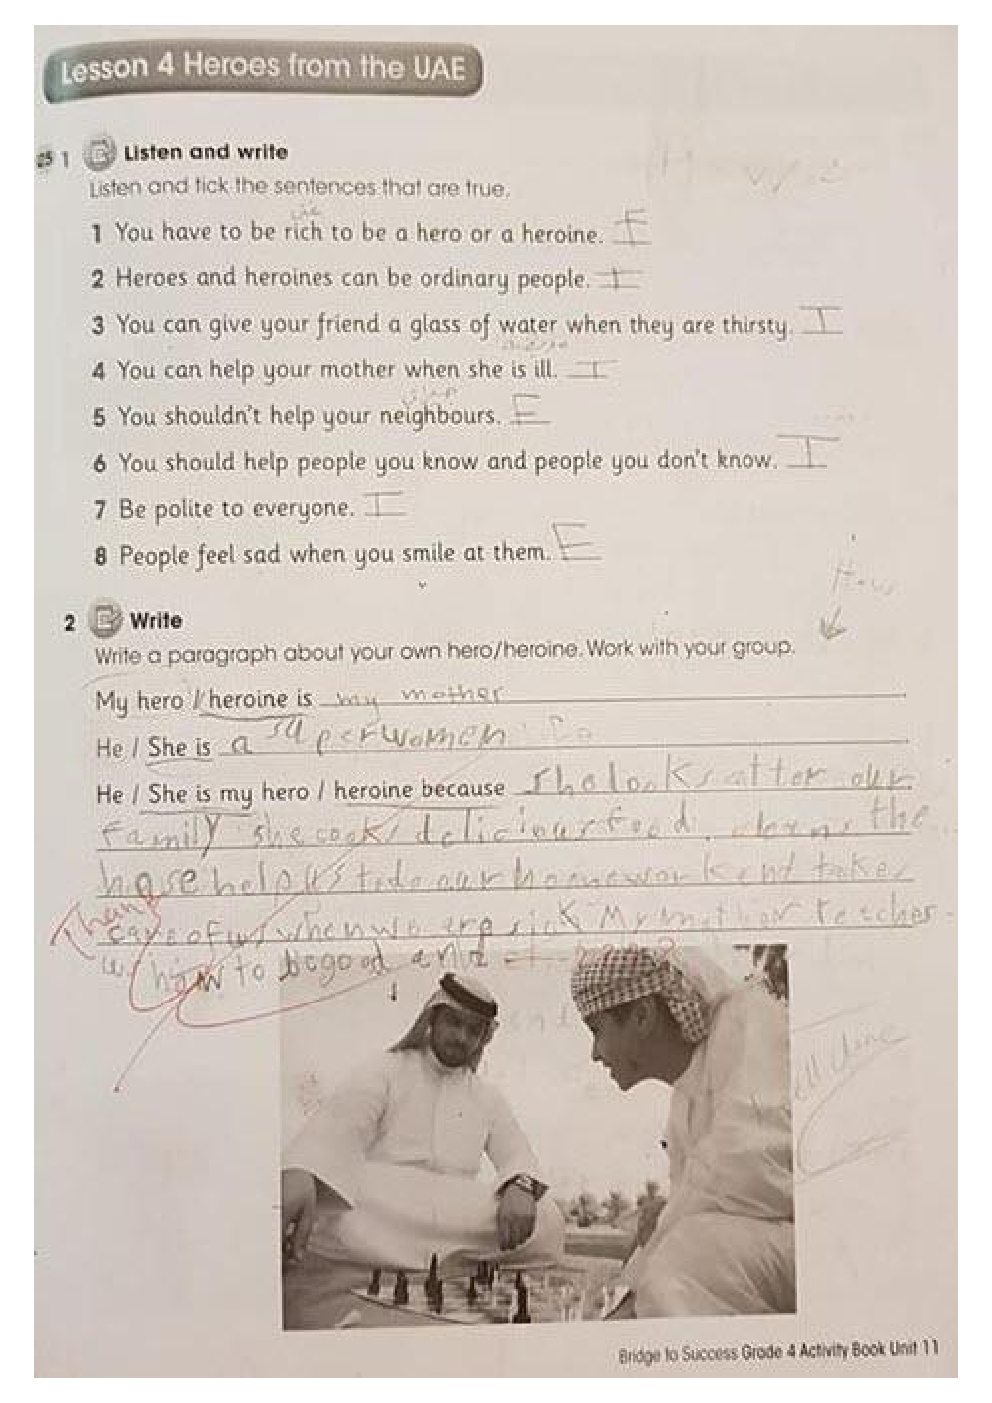 Lesson 4 Heroes from the UAE
25 1 Listen and write
Listen and tick the sentences that are true.
1 You have to be rich to be a hero or a heroine. F
2 Heroes and heroines can be ordinary people. T
3 You can give your friend a glass of water when they are thirsty. T
4 You can help your mother when she is ill. T
5 You shouldn't help your neighbours. F
6 You should help people you know and people you don't know. T
7 Be polite to everyone. T
8 People feel sad when you smile at them. F
2 Write
Write a paragraph about your own hero/heroine. Work with your group.
My hero / heroine is my mother
He / She is a superwomen
He / She is my hero / heroine because sho looks atter our
family she cooks delicious food. the
house help us todo our homework and takes
care of us when we are sick My mother teaches
how to be good and
Bridge to Success Grade 4 Activity Book Unit 11